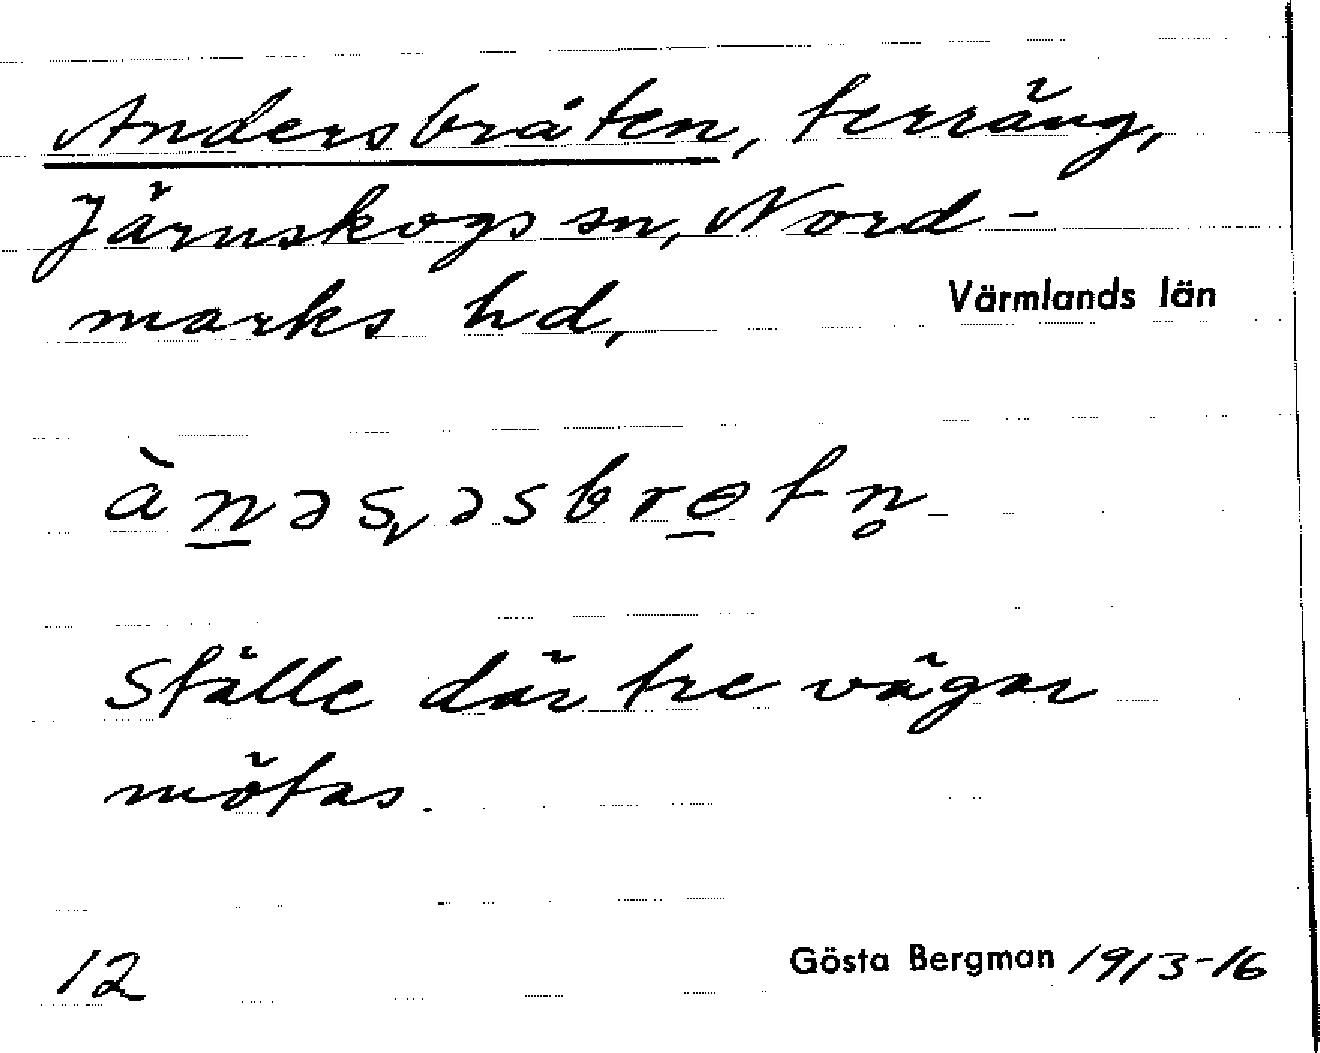 Andersbråten, terräng,
Järnskogs sn, Nord-
marks hd, Värmlands län
àn̲əsˌəsbrɵ̲tn̥
Ställe där tre vägar
mötas.
12 Gösta Bergman 1913-16